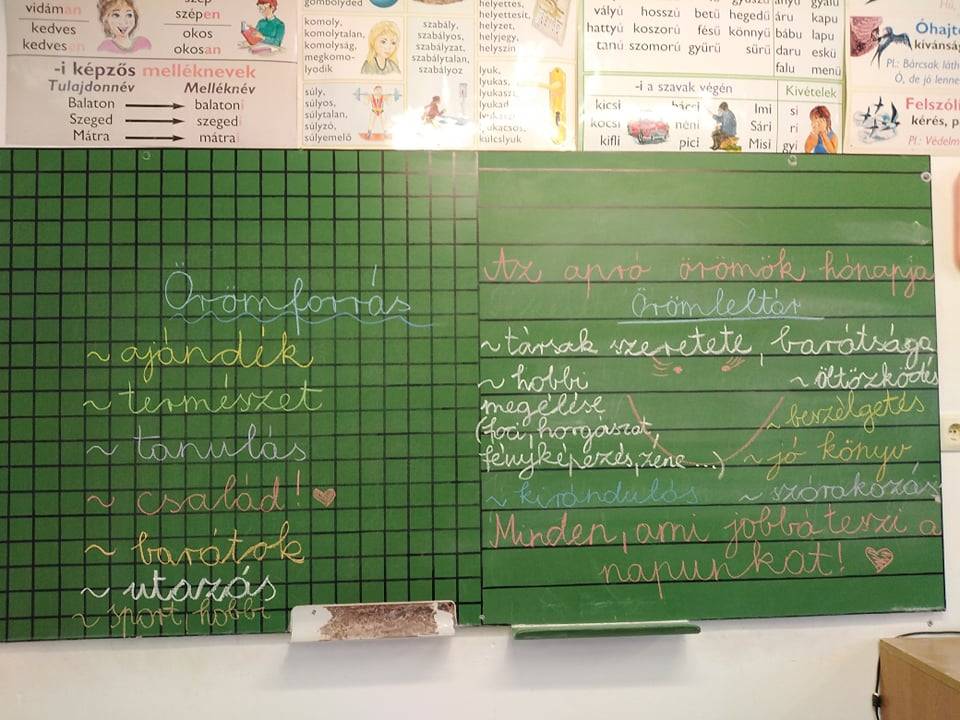 vidáman
kedves
kedvesen
szép
szépen
okos
okosan
-i képzős melléknevek
Tulajdonnév Melléknév
Balaton balatoni
Szeged szegedi
Mátra mátrai
gömbölyded
komoly,
komolytalan,
komolyság,
megkomo-
lyodik
szabály,
szabályos,
szabályzat,
szabálytalan,
szabályoz
súly,
súlyos,
súlytalan,
súlyzó,
súlyemelő
helyettes,
helyettesít,
helyzet,
helyjegy,
helyszín
lyuk,
lyukas,
lyukaszt
lyukad
lyukacsos,
kulcslyuk
vályú hosszú betű hegedű
hattyú koszorú fésű könnyű
tanú szomorú gyűrű sűrű
anyu gyalu
áru kapu
bábu lapu
daru eskü
falu menü
-i a szavak végén
Kivételek
kicsi bácsi Imi
kocsi néni Sári
kifli pici Misi
si
rí
gyi
Óhajtó
kívánság
Pl.: Bárcsak
Ó, de jó lenne
Felszólí
kérés, p
Pl.: Védelm
Örömforrás
~ ajándék
~ természet
~ tanulás
~ család! ♥
~ barátok
~ utazás
~ sport, hobbi
Az apró örömök hónapja
Örömleltár
~ társak szeretete, barátsága
~ hobbi
megélése
(foci, horgászat,
fényképezés, zene ...)
~ öltözködés
~ beszélgetés
~ jó könyv
~ kirándulás ~ szórakozás
Minden, ami jobbá teszi a
napunkat! ♥